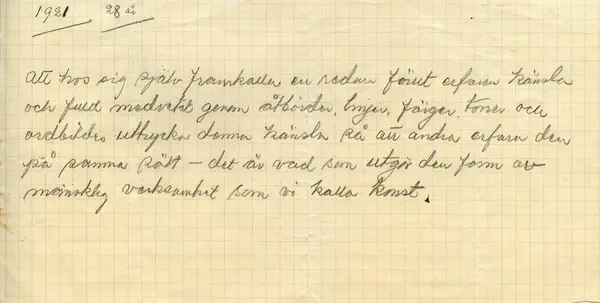 1921 28 år
Att hos sig själv framkalla en redan förut erfaren känsla
och fuld medvetet genom åtbörder, linjer, färger, toner och
ordbilder uttrycka denna känsla så att andra erfara den
på samma sätt – det är vad som utgör den form av
mänsklig verksamhet som vi kalla konst.